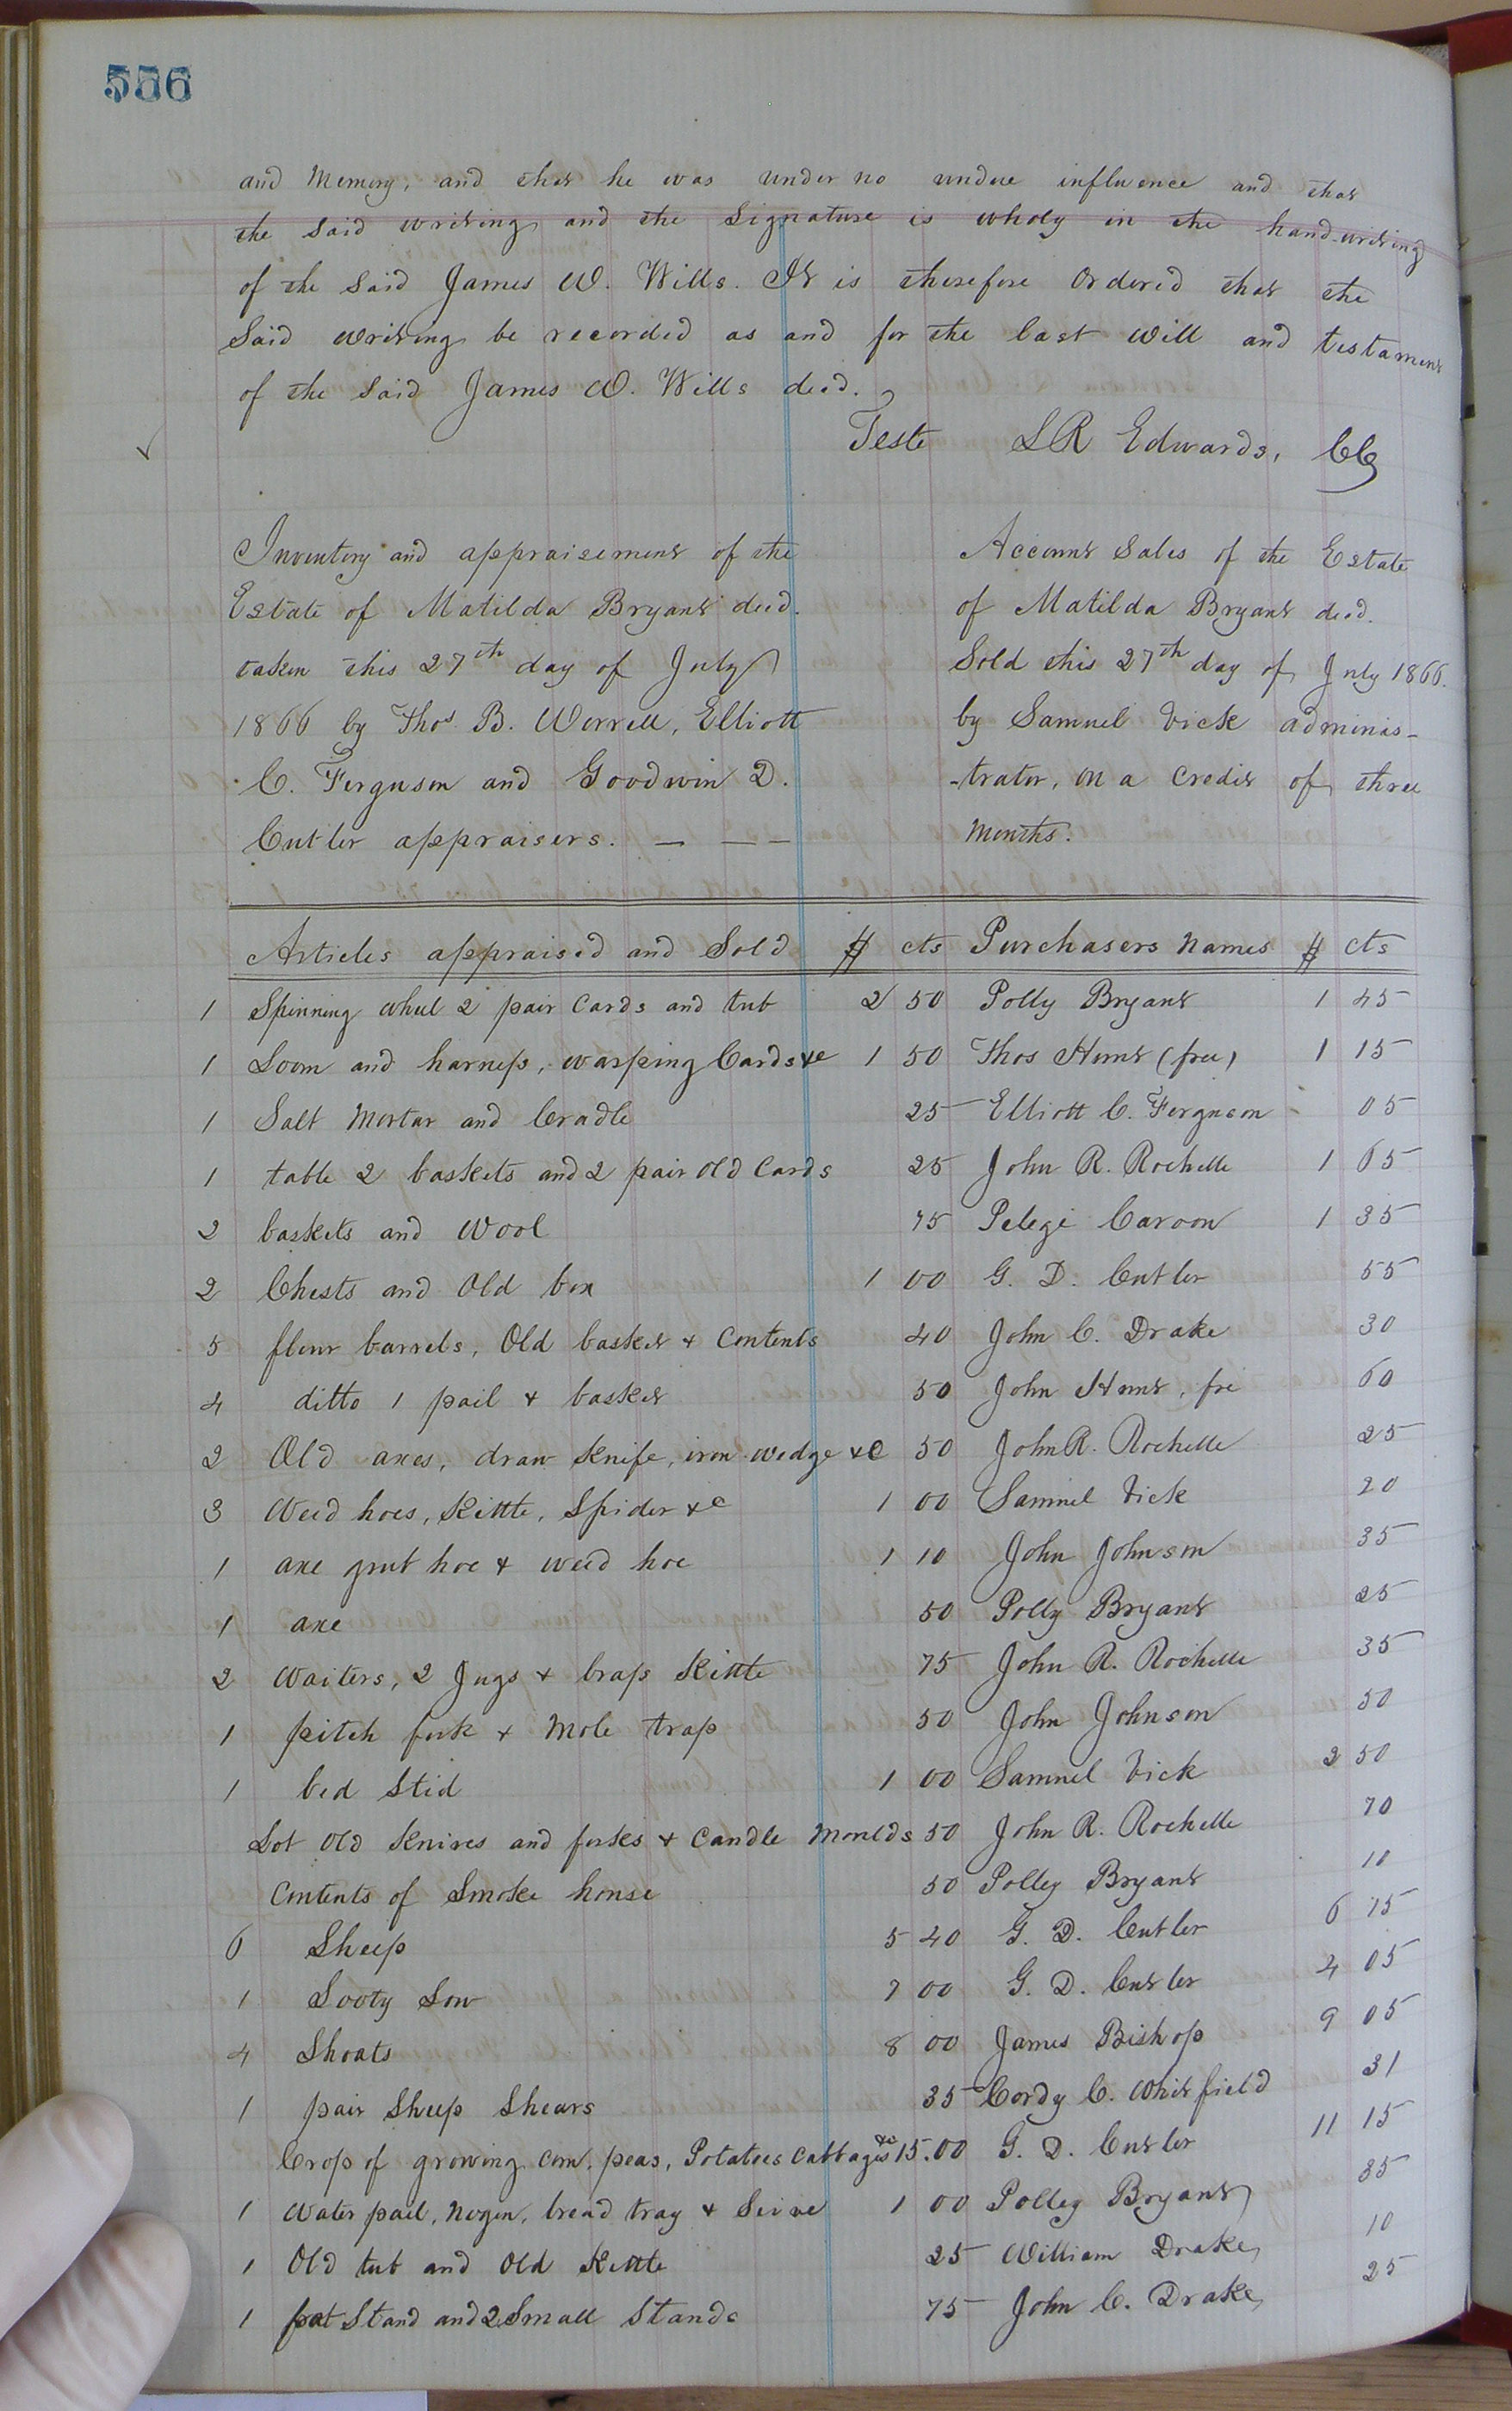 556
and Memory, and that he was under no undue influence and that
the said writing and the Signature is wholy in the hand-writing
of the said James W. Wills. It is therefore Ordered that the
Said writing be recorded as and for the last will and testament
of the said James W. Wills decd.
Teste LR Edwards, CC
Inventory and appraisement of the
Estate of Matilda Bryant decd.
taken this 27th day of July
1866 by Thos B. Worrell, Elliott
C. Ferguson and Goodwin D.
Cutler appraisers. — — —
Account Sales of the Estate
of Matilda Bryant decd.
Sold this 27th day of July 1866.
by Samuel Vick adminis-
-trator, on a Credit of three
Months.
Articles appraised and Sold $ cts Purchasers Names $ cts
1 Spinning wheel 2 pair Cards and tub 2 50 Polly Bryant 1 45
1 Loom and harness, warping Cards &c 1 50 Thos Hunt (free) 1 15
1 Salt Mortar and Cradle 25 Elliott C. Ferguson 05
1 table 2 baskets and 2 pair old Cards 25 John R. Rochelle 1 05
2 baskets and Wool 75 Pelege Caroon 1 35
2 Chests and Old box 1 00 G. D. Cutler 55
5 flour barrels, Old basket & Contents 40 John C. Drake 30
4 ditto 1 pail & basket 50 John Hunt, fre 60
2 Old axes, draw Knife, iron wedge &C 50 John R. Rochelle 25
3 Weed hoes, Kittle, Spider &c 1 00 Samuel Vick 20
1 axe grub hoe & weed hoe 1 10 John Johnson 35
1 axe 50 Polly Bryant 25
2 Waiters, 2 Jugs & brass Kittle 75 John R. Rochelle 35
1 pitch fork & Mole trap 50 John Johnson 50
1 bed Stid 1 00 Samuel Vick 2 50
Lot Old Knives and forks & Candle Moulds 50 John R. Rochelle 70
Contents of Smoke house 50 Polley Bryant 10
6 Sheep 5 40 G. D. Cutler 6 75
1 Sooty Sow 7 00 G. D. Cutler 4 05
4 Shoats 8 00 James Bishop 9 05
1 pair Sheep Shears 35 Cordy C. Whitfield 31
Crop of growing Corn, peas, Potatoes Cabbages &c 15.00 G. D. Cutler 11 15
1 Water pail, Nogen, bread tray & Seive 1 00 Polley Bryant 35
1 Old tub and Old Kittle 25 William Drake 10
1 fat Stand and 2 Small Stands 75 John C. Drake 25